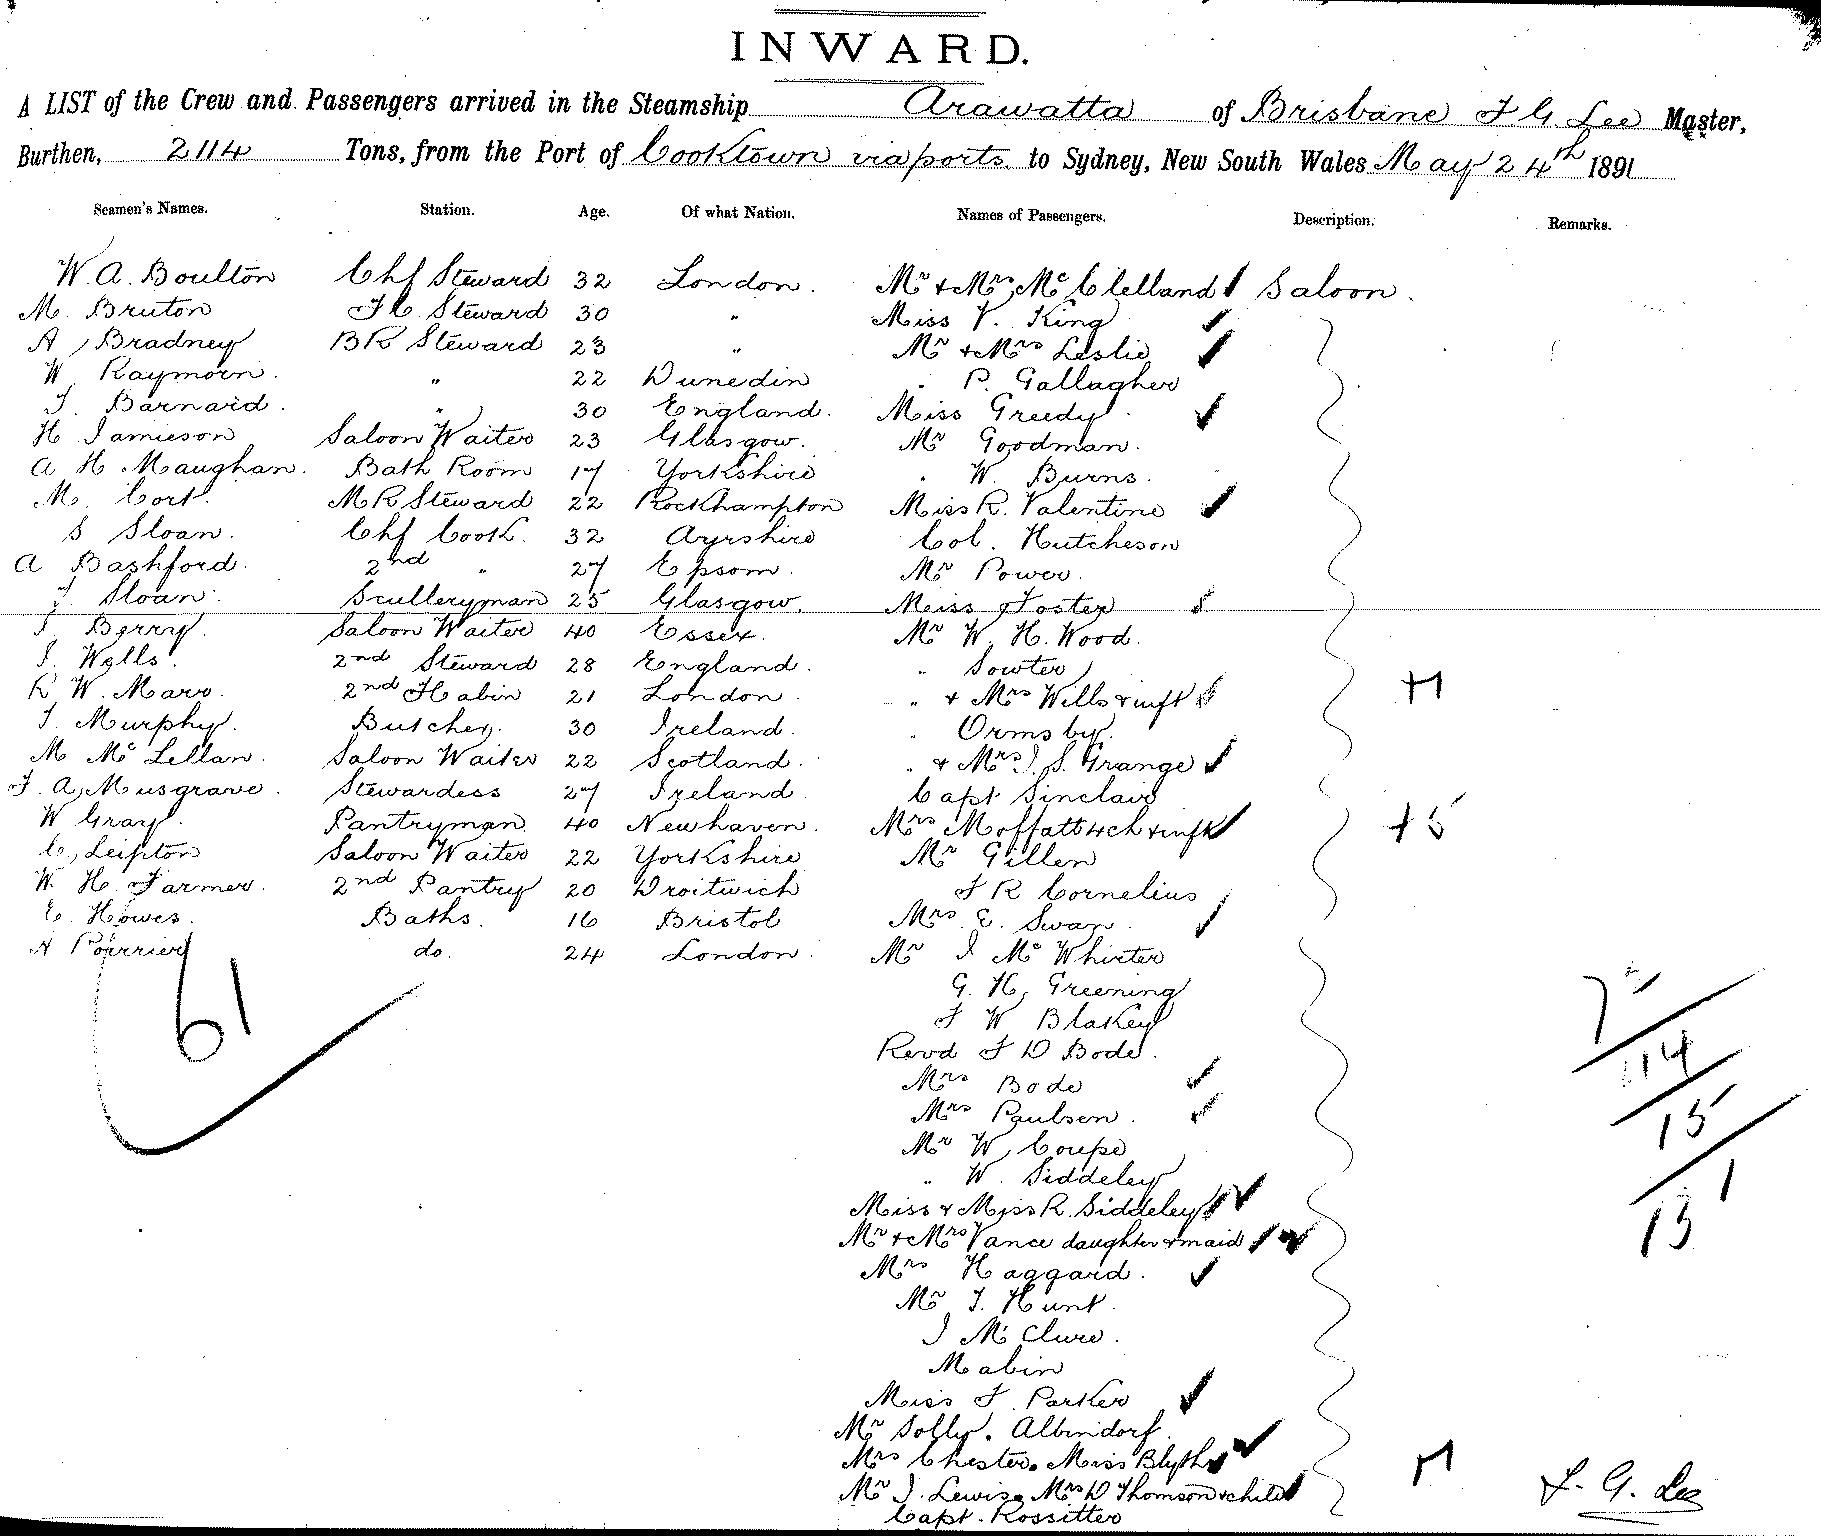 INWARD.
A LIST of the Crew and Passengers arrived in the Steamship Arawatta of Brisbane F G Lee Master,
Burthen, 2114 Tons, from the Port of Cooktown via ports to Sydney, New South Wales May 24th 1891
Seamen's Names. Station. Age. Of what Nation. Names of Passengers. Description. Remarks.
W. A. Boulton Chf Steward 32 London. Mr & Mrs McClelland Saloon.
M. Bruton F C Steward 30 " Miss V. King
A. Bradney BR Steward 23 " Mr & Mrs Leslie
W. Raymorn. " 22 Dunedin " P. Gallagher
J. Barnard. " 30 England. Miss Greedy
H Jamieson Saloon Waiter 23 Glasgow. Mr Goodman.
A H Maughan. Bath Room 17 Yorkshire " W. Burns.
M. Cort. M R Steward 22 Rockhampton Miss R. Valentine
S Sloan. Chf Cook. 32 Ayrshire Col. Hutcheson
A Bashford. 2nd " 27 Epsom. Mr Power.
J. Sloan. Sculleryman 25 Glasgow. Miss Foster
J. Berry. Saloon Waiter 40 Essex. Mr W. H. Wood.
J. Wells. 2nd Steward 28 England. " Sowter
R W. Marr. 2nd F Cabin 21 London. " & Mrs Wills & inft +1
J. Murphy. Butcher. 30 Ireland. " Ormsby.
M McLellan. Saloon Waiter 22 Scotland. " & Mrs J. S. Grange
F. A. Musgrave. Stewardess 27 Ireland. Capt Sinclair
W Gray. Pantryman 40 Newhaven. Mrs Moffatt 4 ch & inft +5
C. Leipton Saloon Waiter 22 Yorkshire Mr Gillen
W. H. Farmer. 2nd Pantry 20 Droitwich J R Cornelius
E. Howes. Baths. 16 Bristol Mrs E. Swan.
A Pourrier do. 24 London. Mr J McWhirter
61
G. H. Greening
J W Blakey
Revd J D Bode.
14
Mrs Bode
Mrs Paulsen.
15
Mr W. Coupe
" W. Siddeley
Miss & Miss R. Siddeley
1
Mr & Mrs Vance daughter & maid
13
Mrs Haggard.
Mr J. Hunt.
J McClure.
Mabin
Miss F. Parker
Mr Solly. Albindorf.
Mrs Chester. Miss Blyth
Mr J. Lewis. Mrs D Thomson & child F. G. Lee
Capt. Rossitter